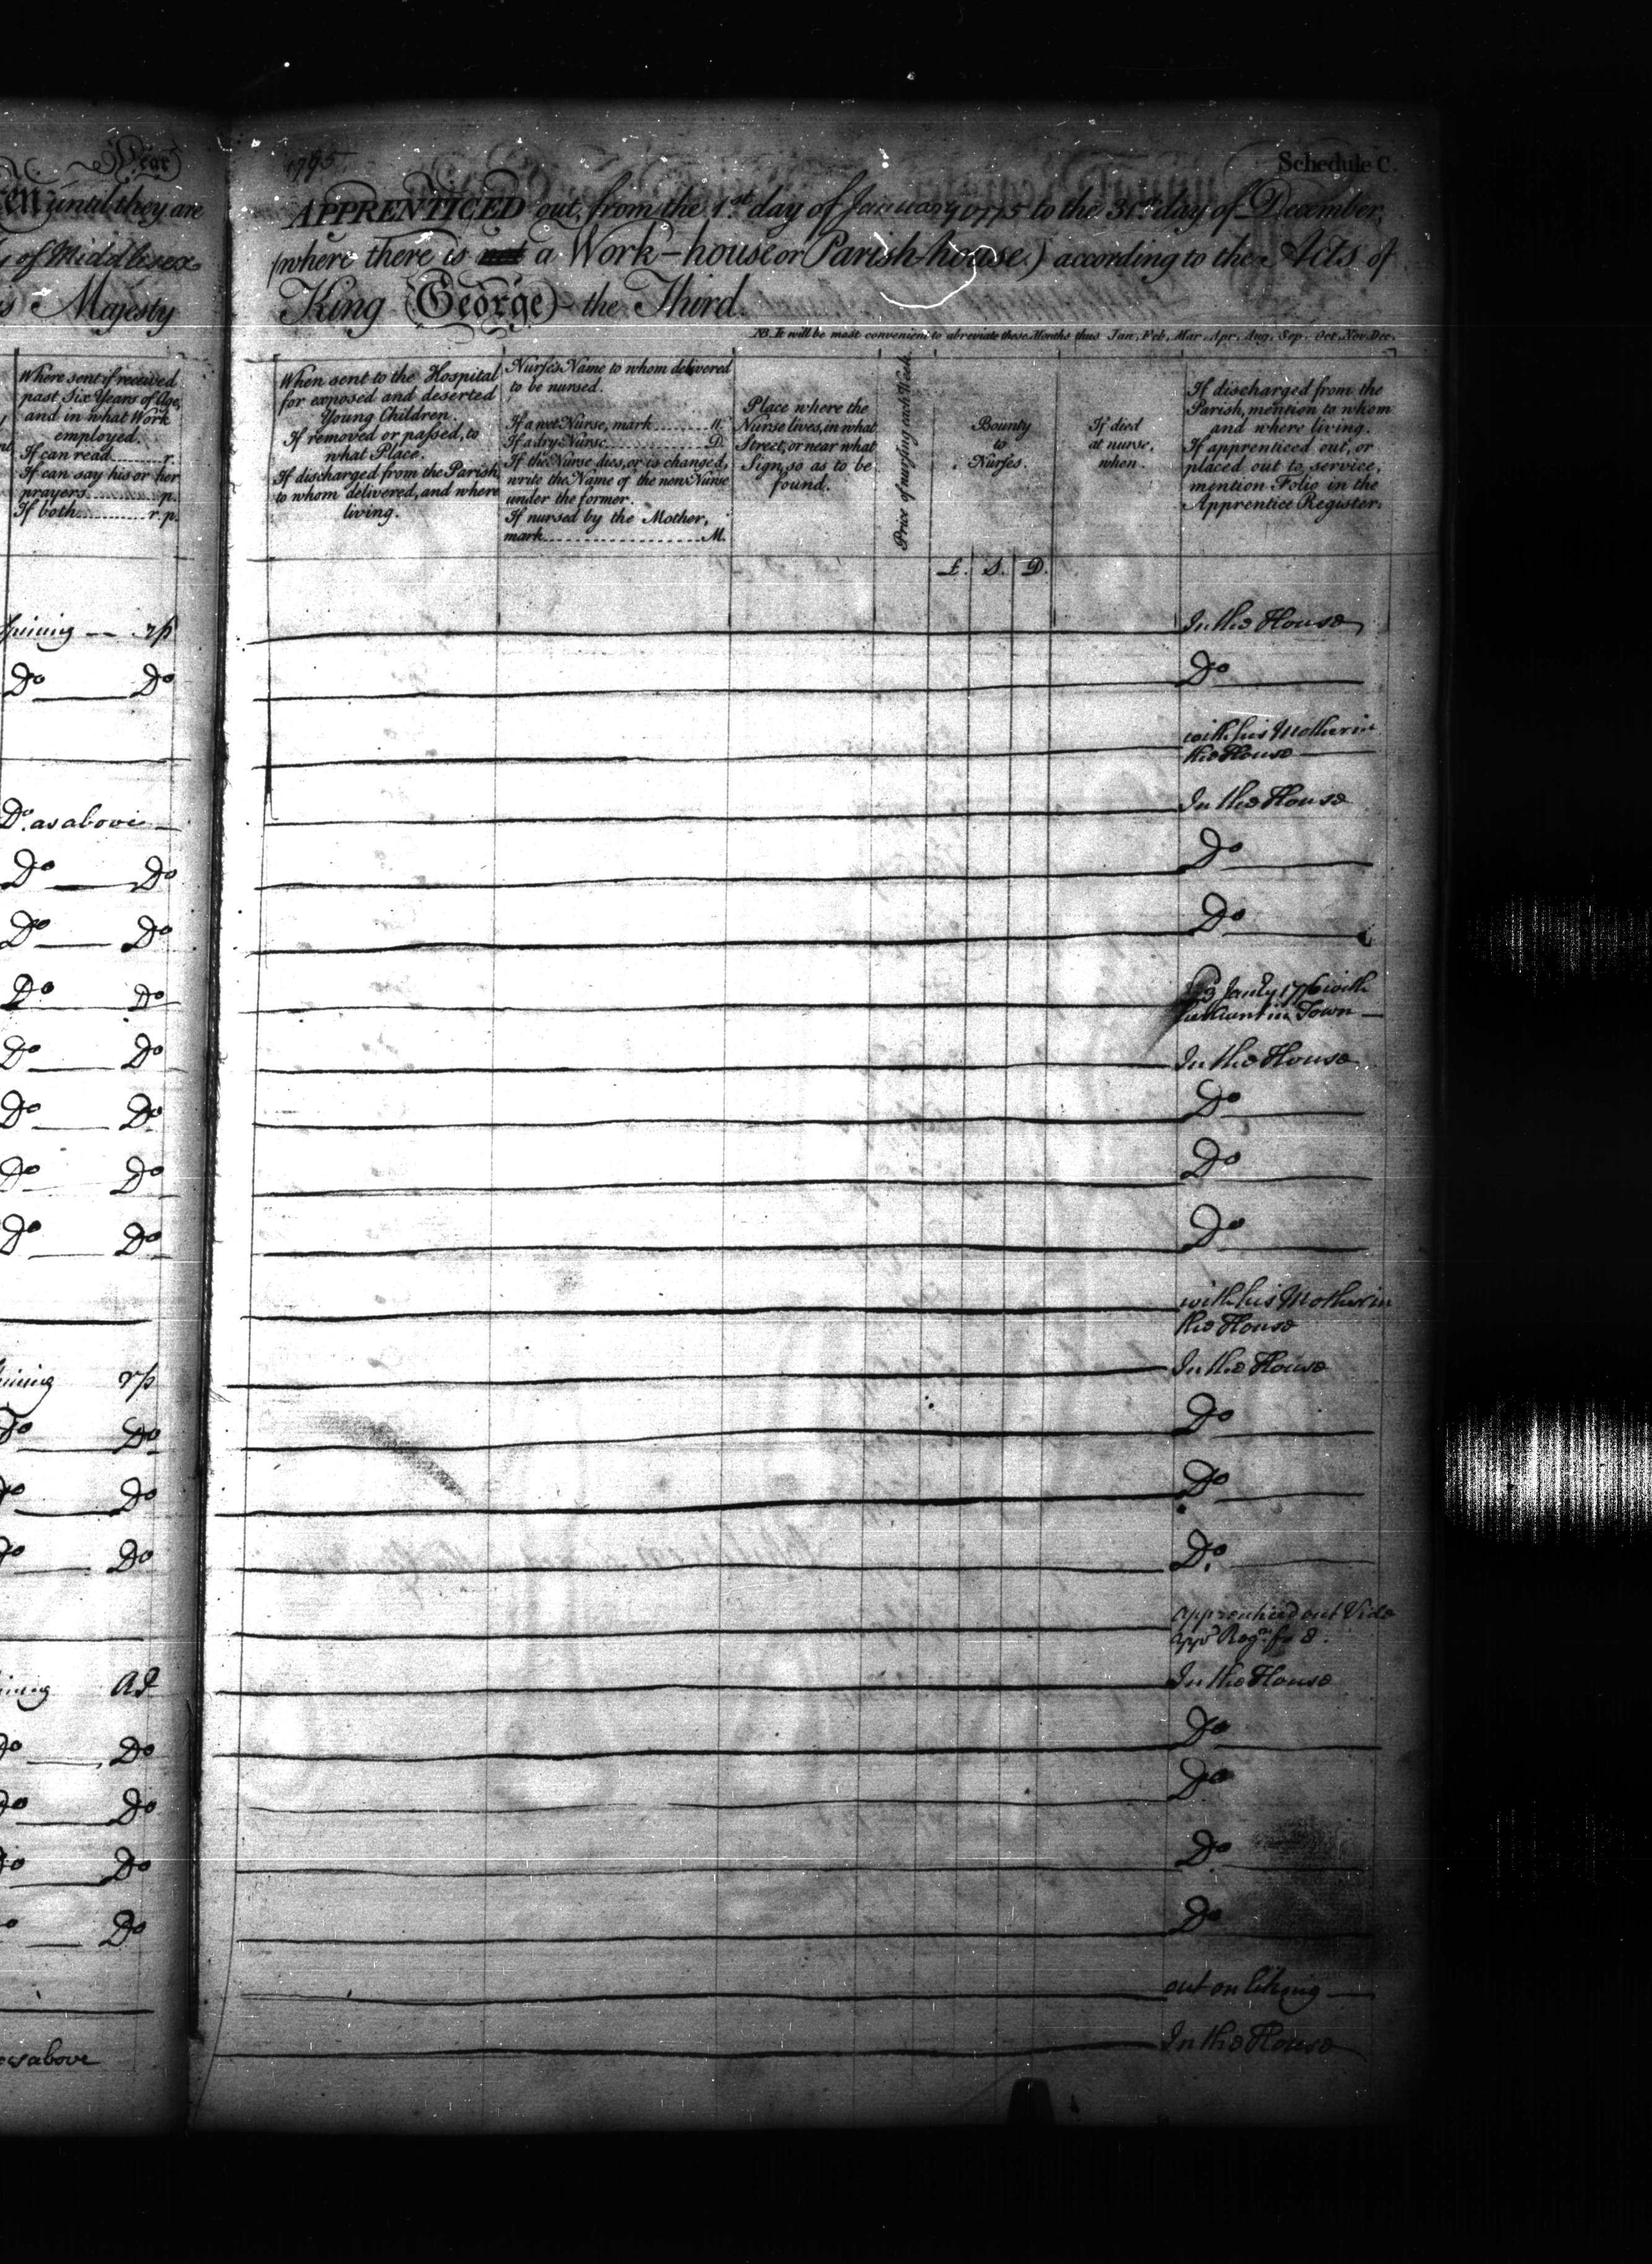 Year
until they are
of Middlesex
Majesty
Where sent if received
past Six Years of Age,
and in what Work
employed.
If can read........r.
If can say his or her
prayers........p.
If both........r.p.
rp
Do Do
Do. as above
Do Do
Do Do
Do Do
Do Do
Do Do
Do Do
Do Do
rp
Do
Do
Do
Do
Do
Do
Do
as above
Schedule C.
APPRENTICED out, from the 1st day of January to the 31st day of December,
(where there is not a Work-house or Parish-house.) according to the Acts of
King George the Third.
NB. It will be most convenient to abreviate these Months thus Jan, Feb, Mar, Apr, Aug, Sep, Oct, Nov, Dec.
When sent to the Hospital
for exposed and deserted
Young Children.
If removed or passed, to
what Place.
If discharged from the Parish,
to whom delivered, and where
living.
Nurse's Name to whom delivered
to be nursed.
If a wet Nurse, mark........W.
If a dry Nurse........D.
If the Nurse dies, or is changed,
write the Name of the new Nurse
under the former.
If nursed by the Mother,
mark........M.
Place where the
Nurse lives, in what
Street, or near what
Sign, so as to be
found.
Price of nursing each Week.
Bounty
to
Nurses.
£. S. D.
If died
at nurse,
when.
If discharged from the
Parish, mention to whom
and where living.
If apprenticed out, or
placed out to service,
mention Folio in the
Apprentice Register.
In the House
Do
with his Mother in
the House
In the House
Do
Do
Jany 1776 with
Aunt in Town
In the House
Do
Do
Do
with his Mother in
the House
In the House
Do
Do
Do
apprenticed out Vide
fo 8
In the House
Do
Do
Do
Do
out on liking
In the House